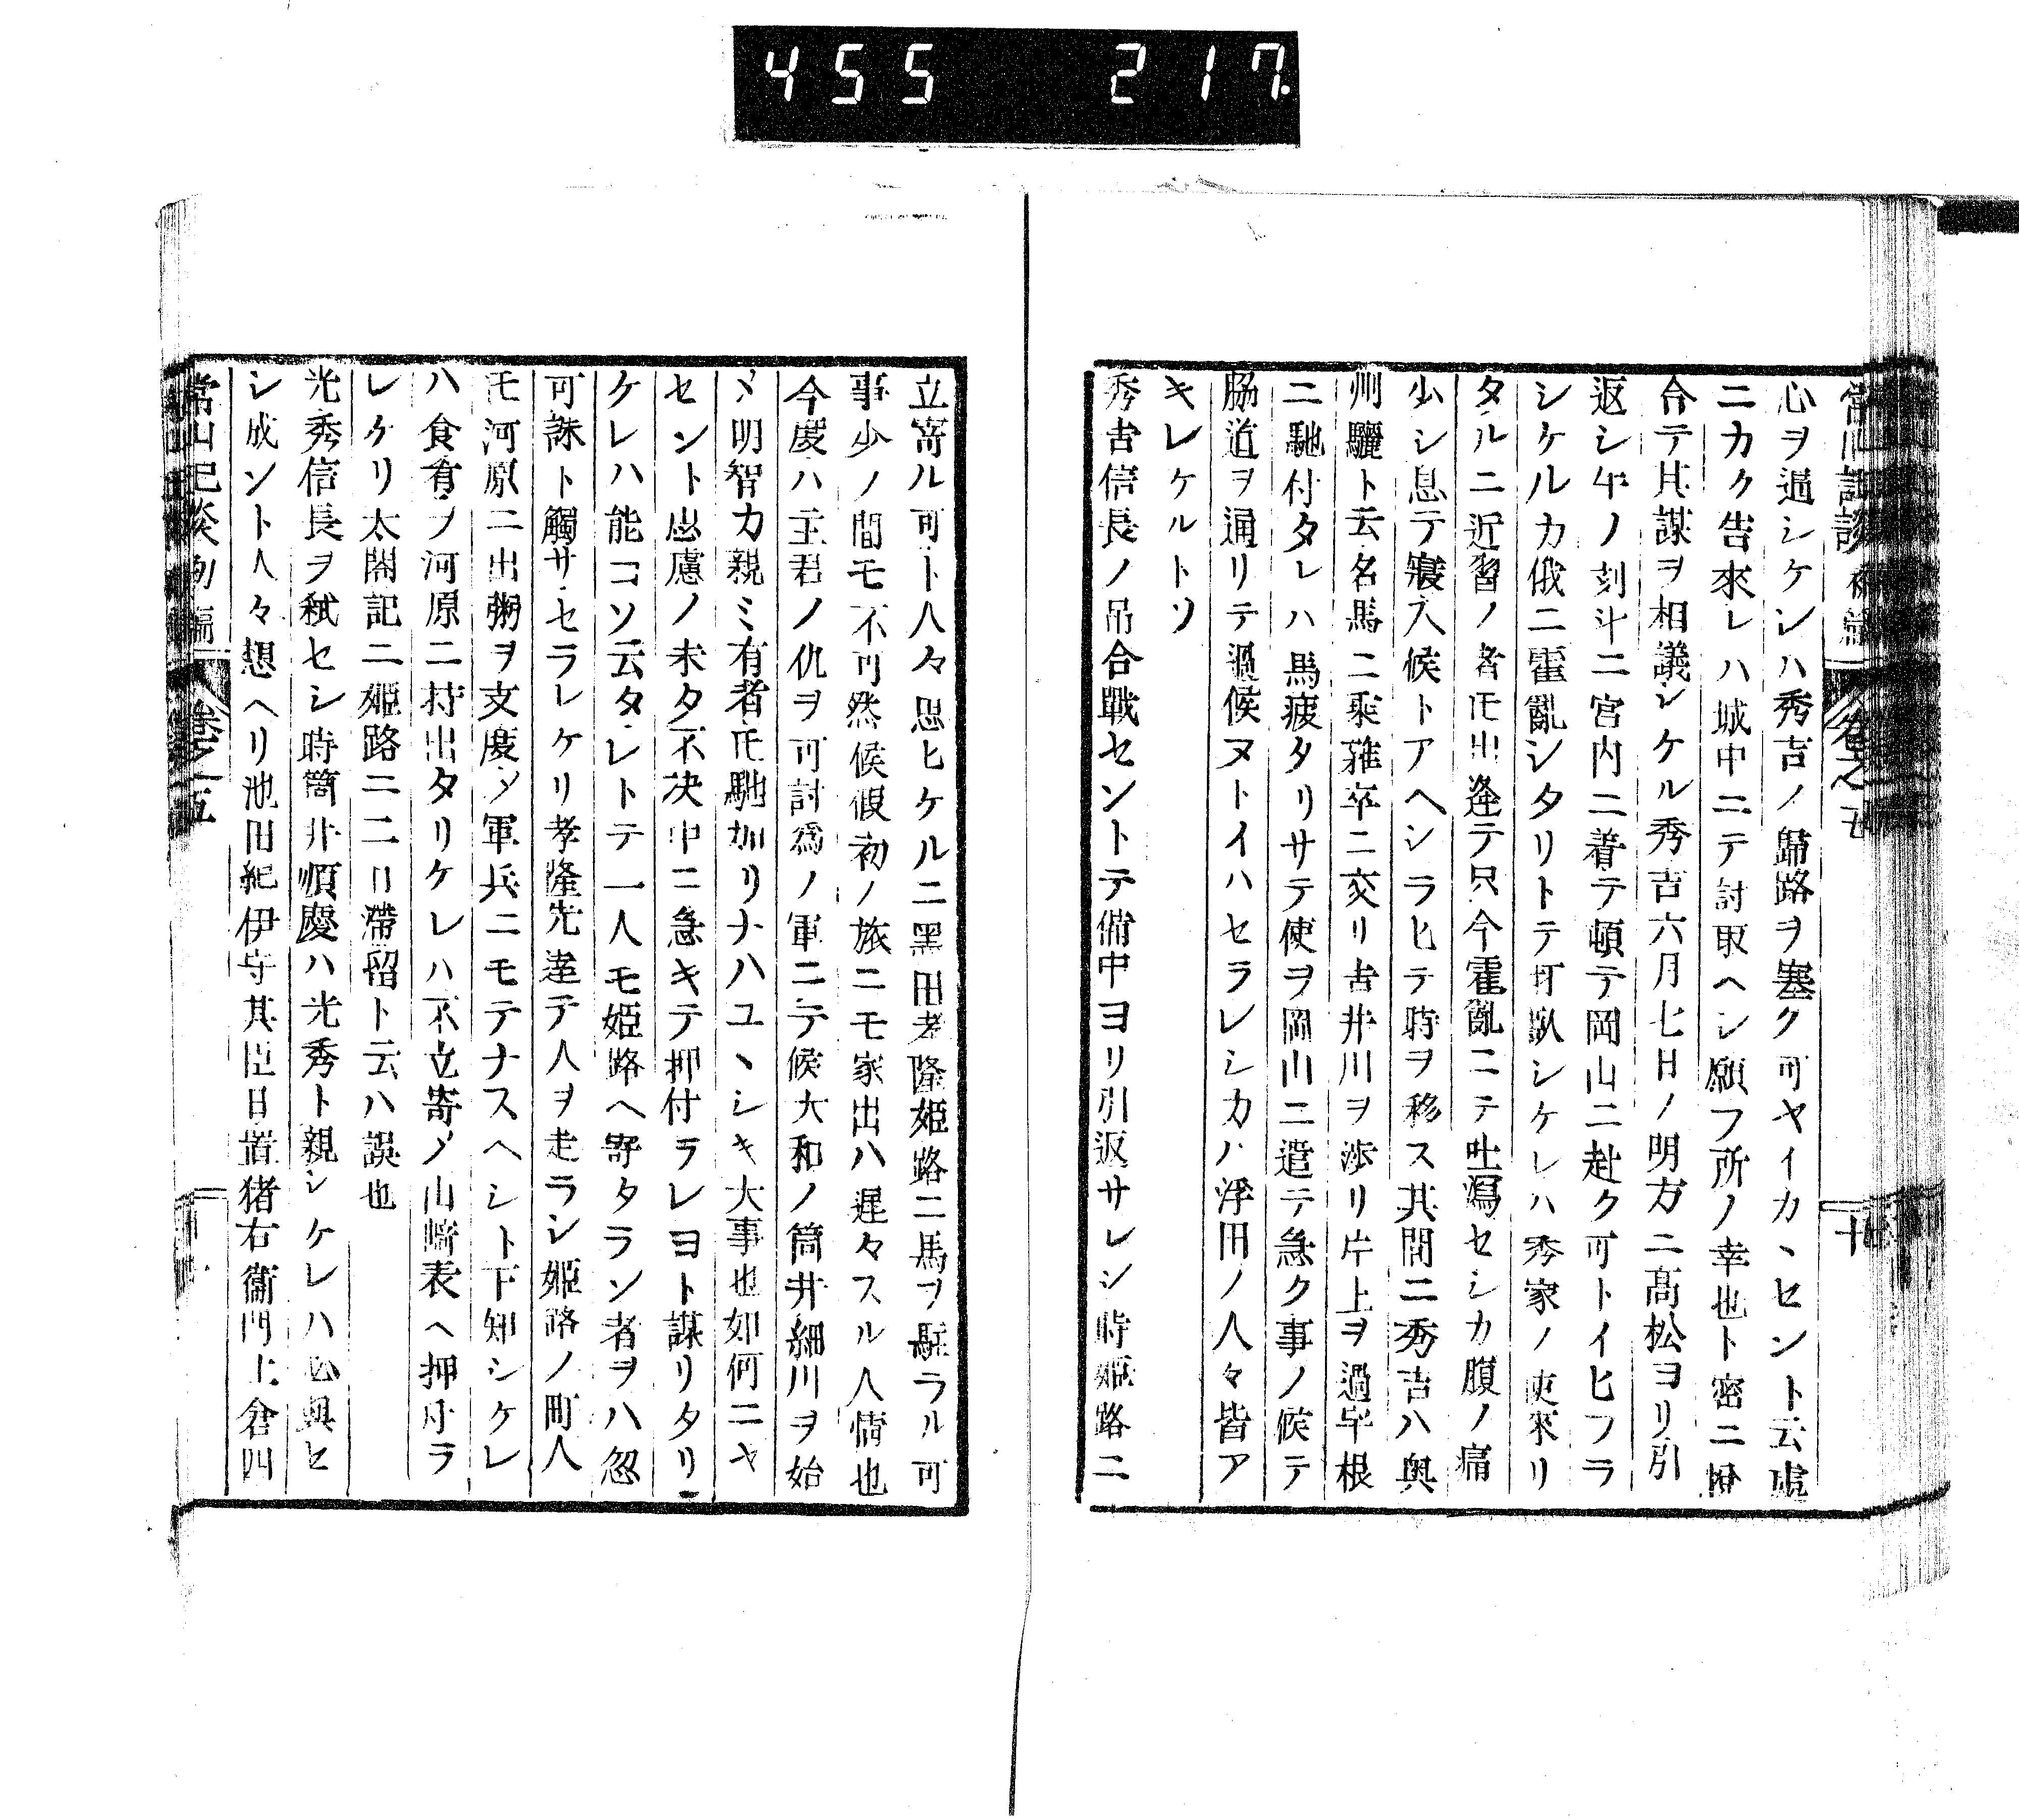 455 217
心ヲ通シケンハ秀吉ノ歸路ヲ塞ク可ヤイカヽセント云處
ニカク告來レハ城中ニテ討取ヘシ願フ所ノ幸也ト密ニ
合テ其謀ヲ相議シケル秀吉六月七日ノ明方ニ髙松ヨリ引
返シ午ノ刻斗ニ宮内ニ着テ頓テ岡山ニ赴ク可トイヒフラ
シケルカ俄ニ霍亂シタリトテ打臥シケレハ秀家ノ使來リ
タルニ近習ノ者𪜈出逢テ只今霍亂ニテ吐瀉セシカ腹ノ痛
少シ息テ寢入候トアヘシラヒテ時ヲ移ス其間ニ秀吉ハ奥
州驪ト云名馬ニ乘雜卒ニ交リ吉井川ヲ渉リ片上ヲ過宇根
ニ馳付タレハ馬疲タリサテ使ヲ岡山ニ遣テ急ク事ノ候テ
脇道ヲ通リテ過候ヌトイハセラレシカハ浮田ノ人々皆ア
キレケルトソ
秀吉信長ノ吊合戰セントテ備中ヨリ引返サレシ時姫路ニ
立寄ル可ト人々思ヒケルニ黑田孝隆姫路ニ馬ヲ駐ラル可
事少ノ間モ不可然候假初ノ旅ニモ家出ハ遲々スル人情也
今度ハ主君ノ仇ヲ可討爲ノ軍ニテ候大和ノ筒井細川ヲ始
メ明智カ親ミ有者𪜈馳加リナハユヽシキ大事也如何ニヤ
セント思慮ノ未タ不決中ニ急キテ押付ラレヨト謀リタリ
ケレハ能コソ云タレトテ一人モ姫路ヘ寄タラン者ヲハ忽
可誅ト觸サセラレケリ孝隆先達テ人ヲ走ラシ姫路ノ町人
𪜈河原ニ出粥ヲ支度シ軍兵ニモテナスヘシト下知シケレ
ハ食有ヲ河原ニ持出タリケレハ不立寄ノ山﨑表ヘ押付ラ
レケリ太閤記ニ姫路ニ二日滯留ト云ハ誤也
光秀信長ヲ弑セシ時筒井順慶ハ光秀ト親シケレハ必與セ
シ成ント人々想ヘリ池田紀伊守其臣日置猪右衞門土倉四
常山紀談 卷之五